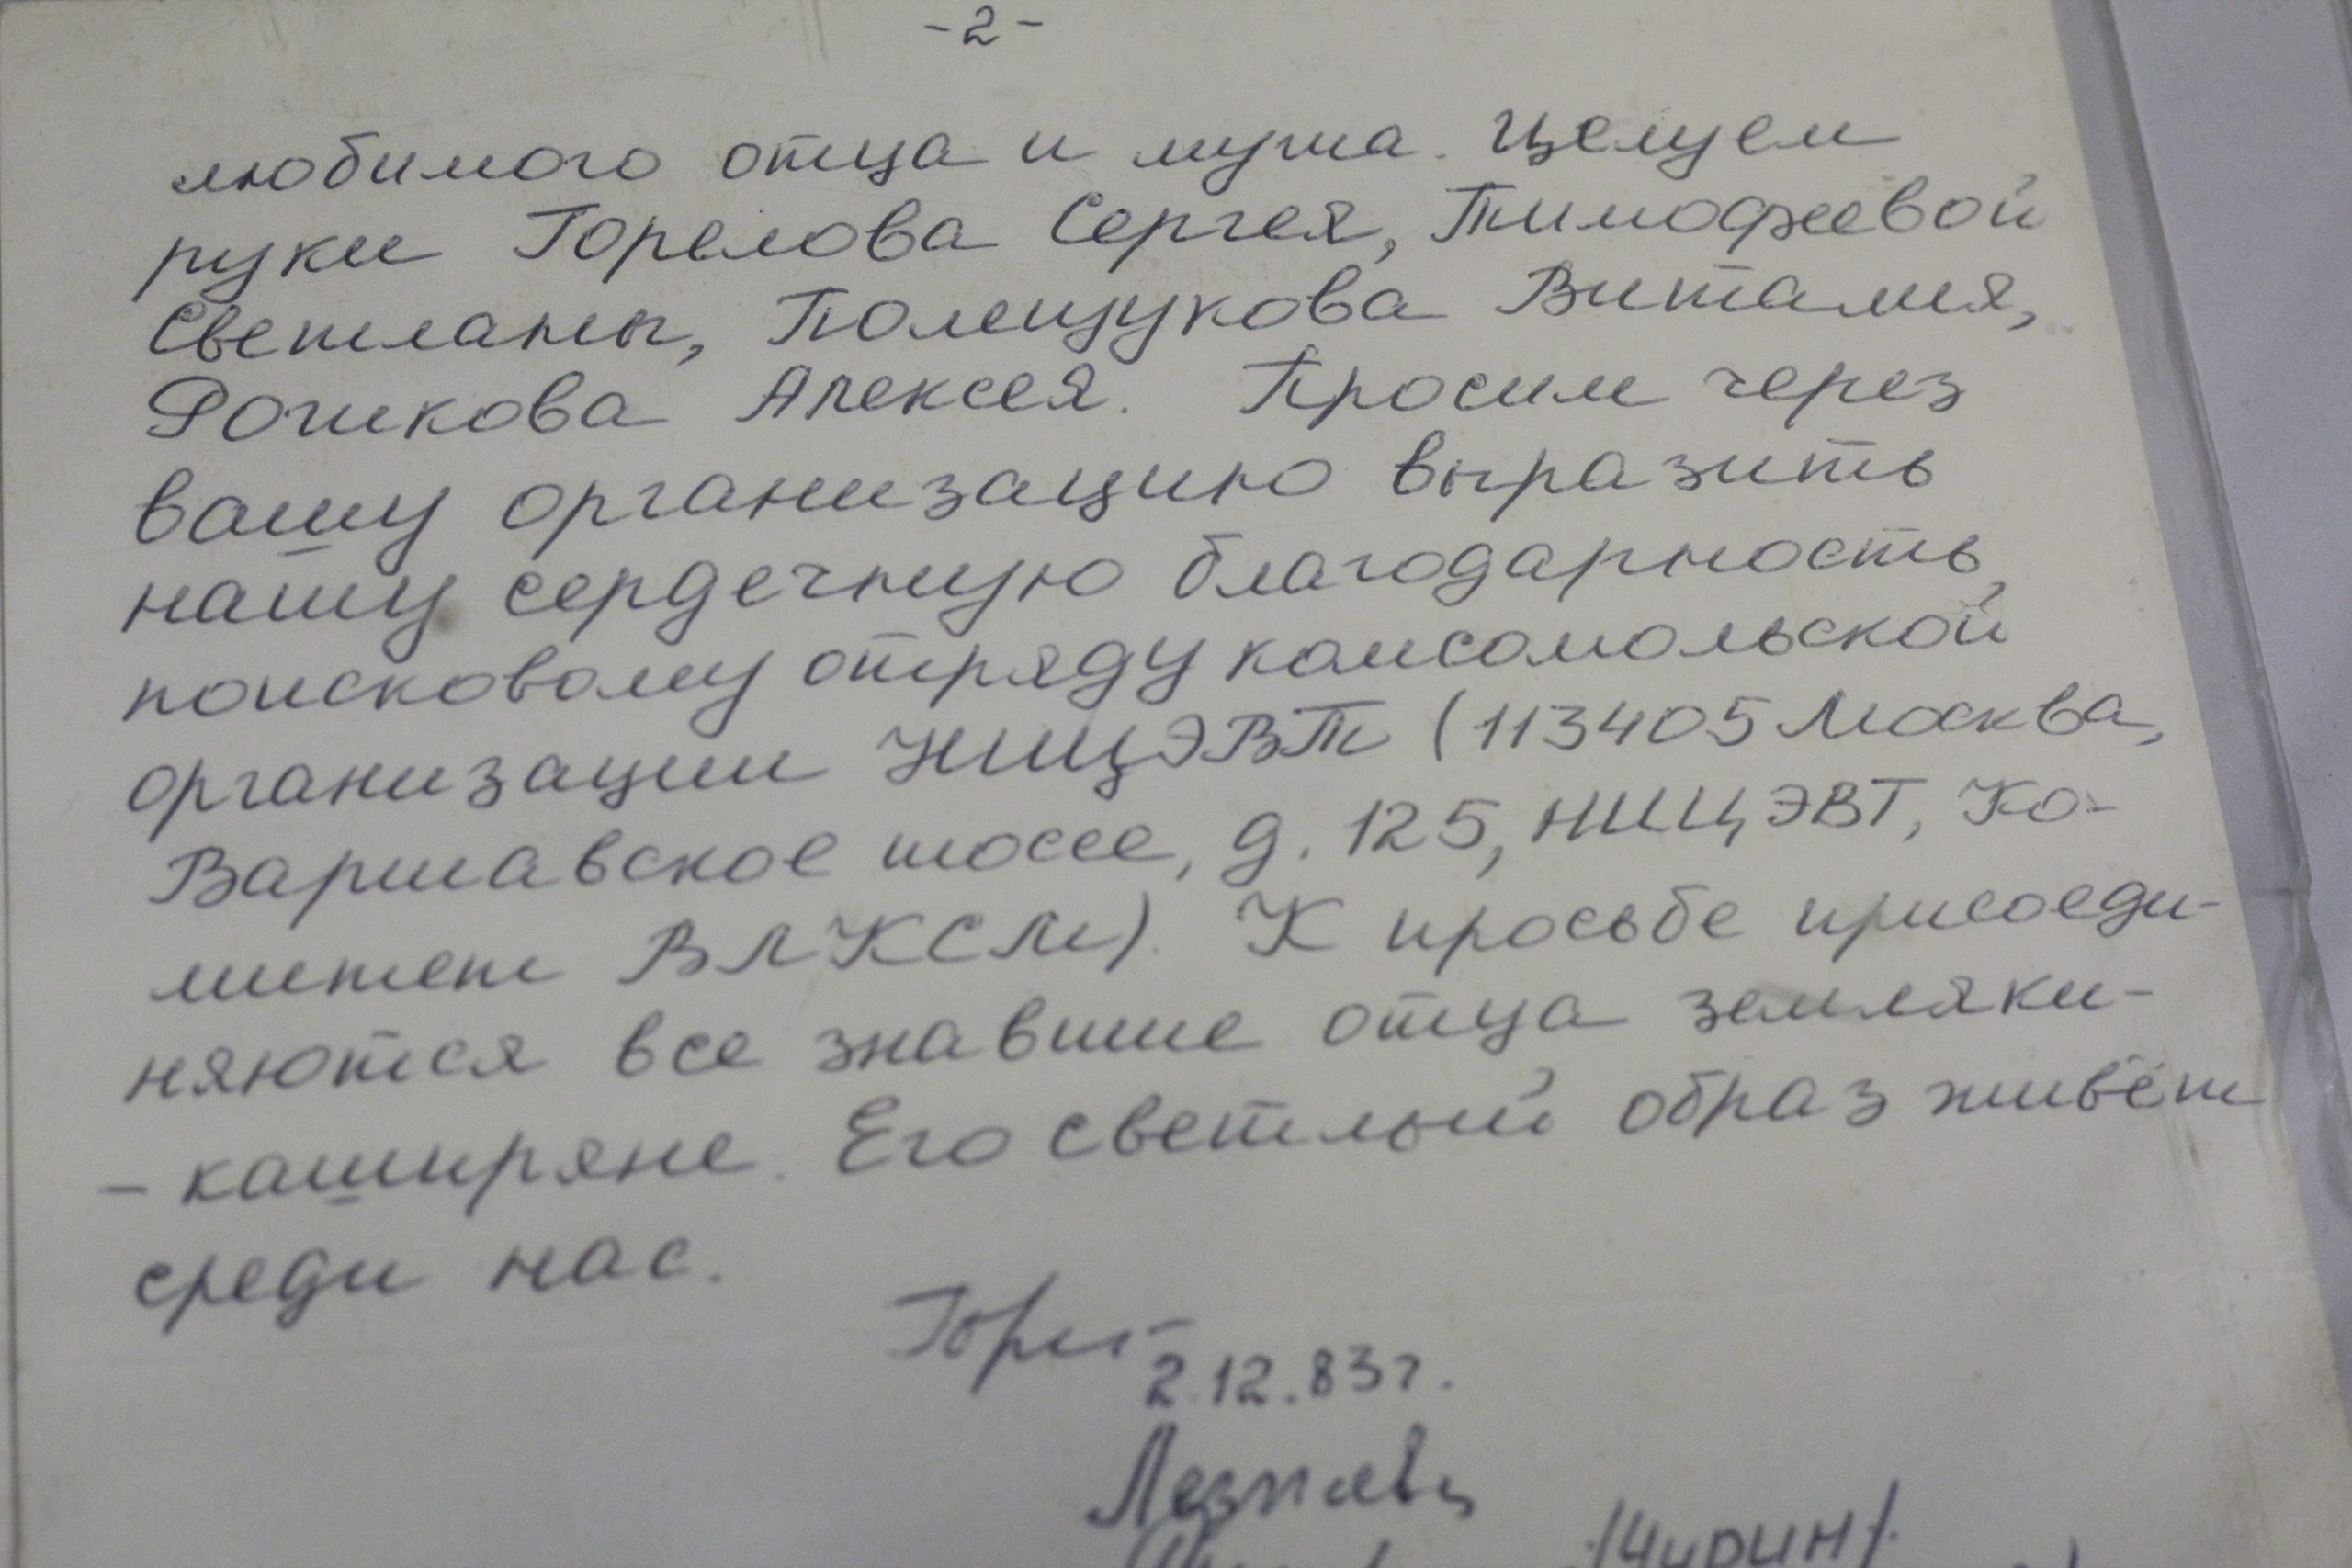 -2-
любимого отца и мужа. Целуем
руки Горелова Сергея, Тимофеевой
Светланы, Полещукова Виталия,
Рошкова Алексея. Просим через
вашу организацию выразить
нашу сердечную благодарность,
поисковому отряду комсомольской
организации НИЦЭВТ (113405 Москва,
Варшавское шоссе, д. 125, НИЦЭВТ, Ко-
митет ВЛКСМ). К просьбе присоеди-
няются все знавшие отца земляки-
-каширяне. Его светлый образ живёт
среди нас.
2.12.83г.
/Чурин/.